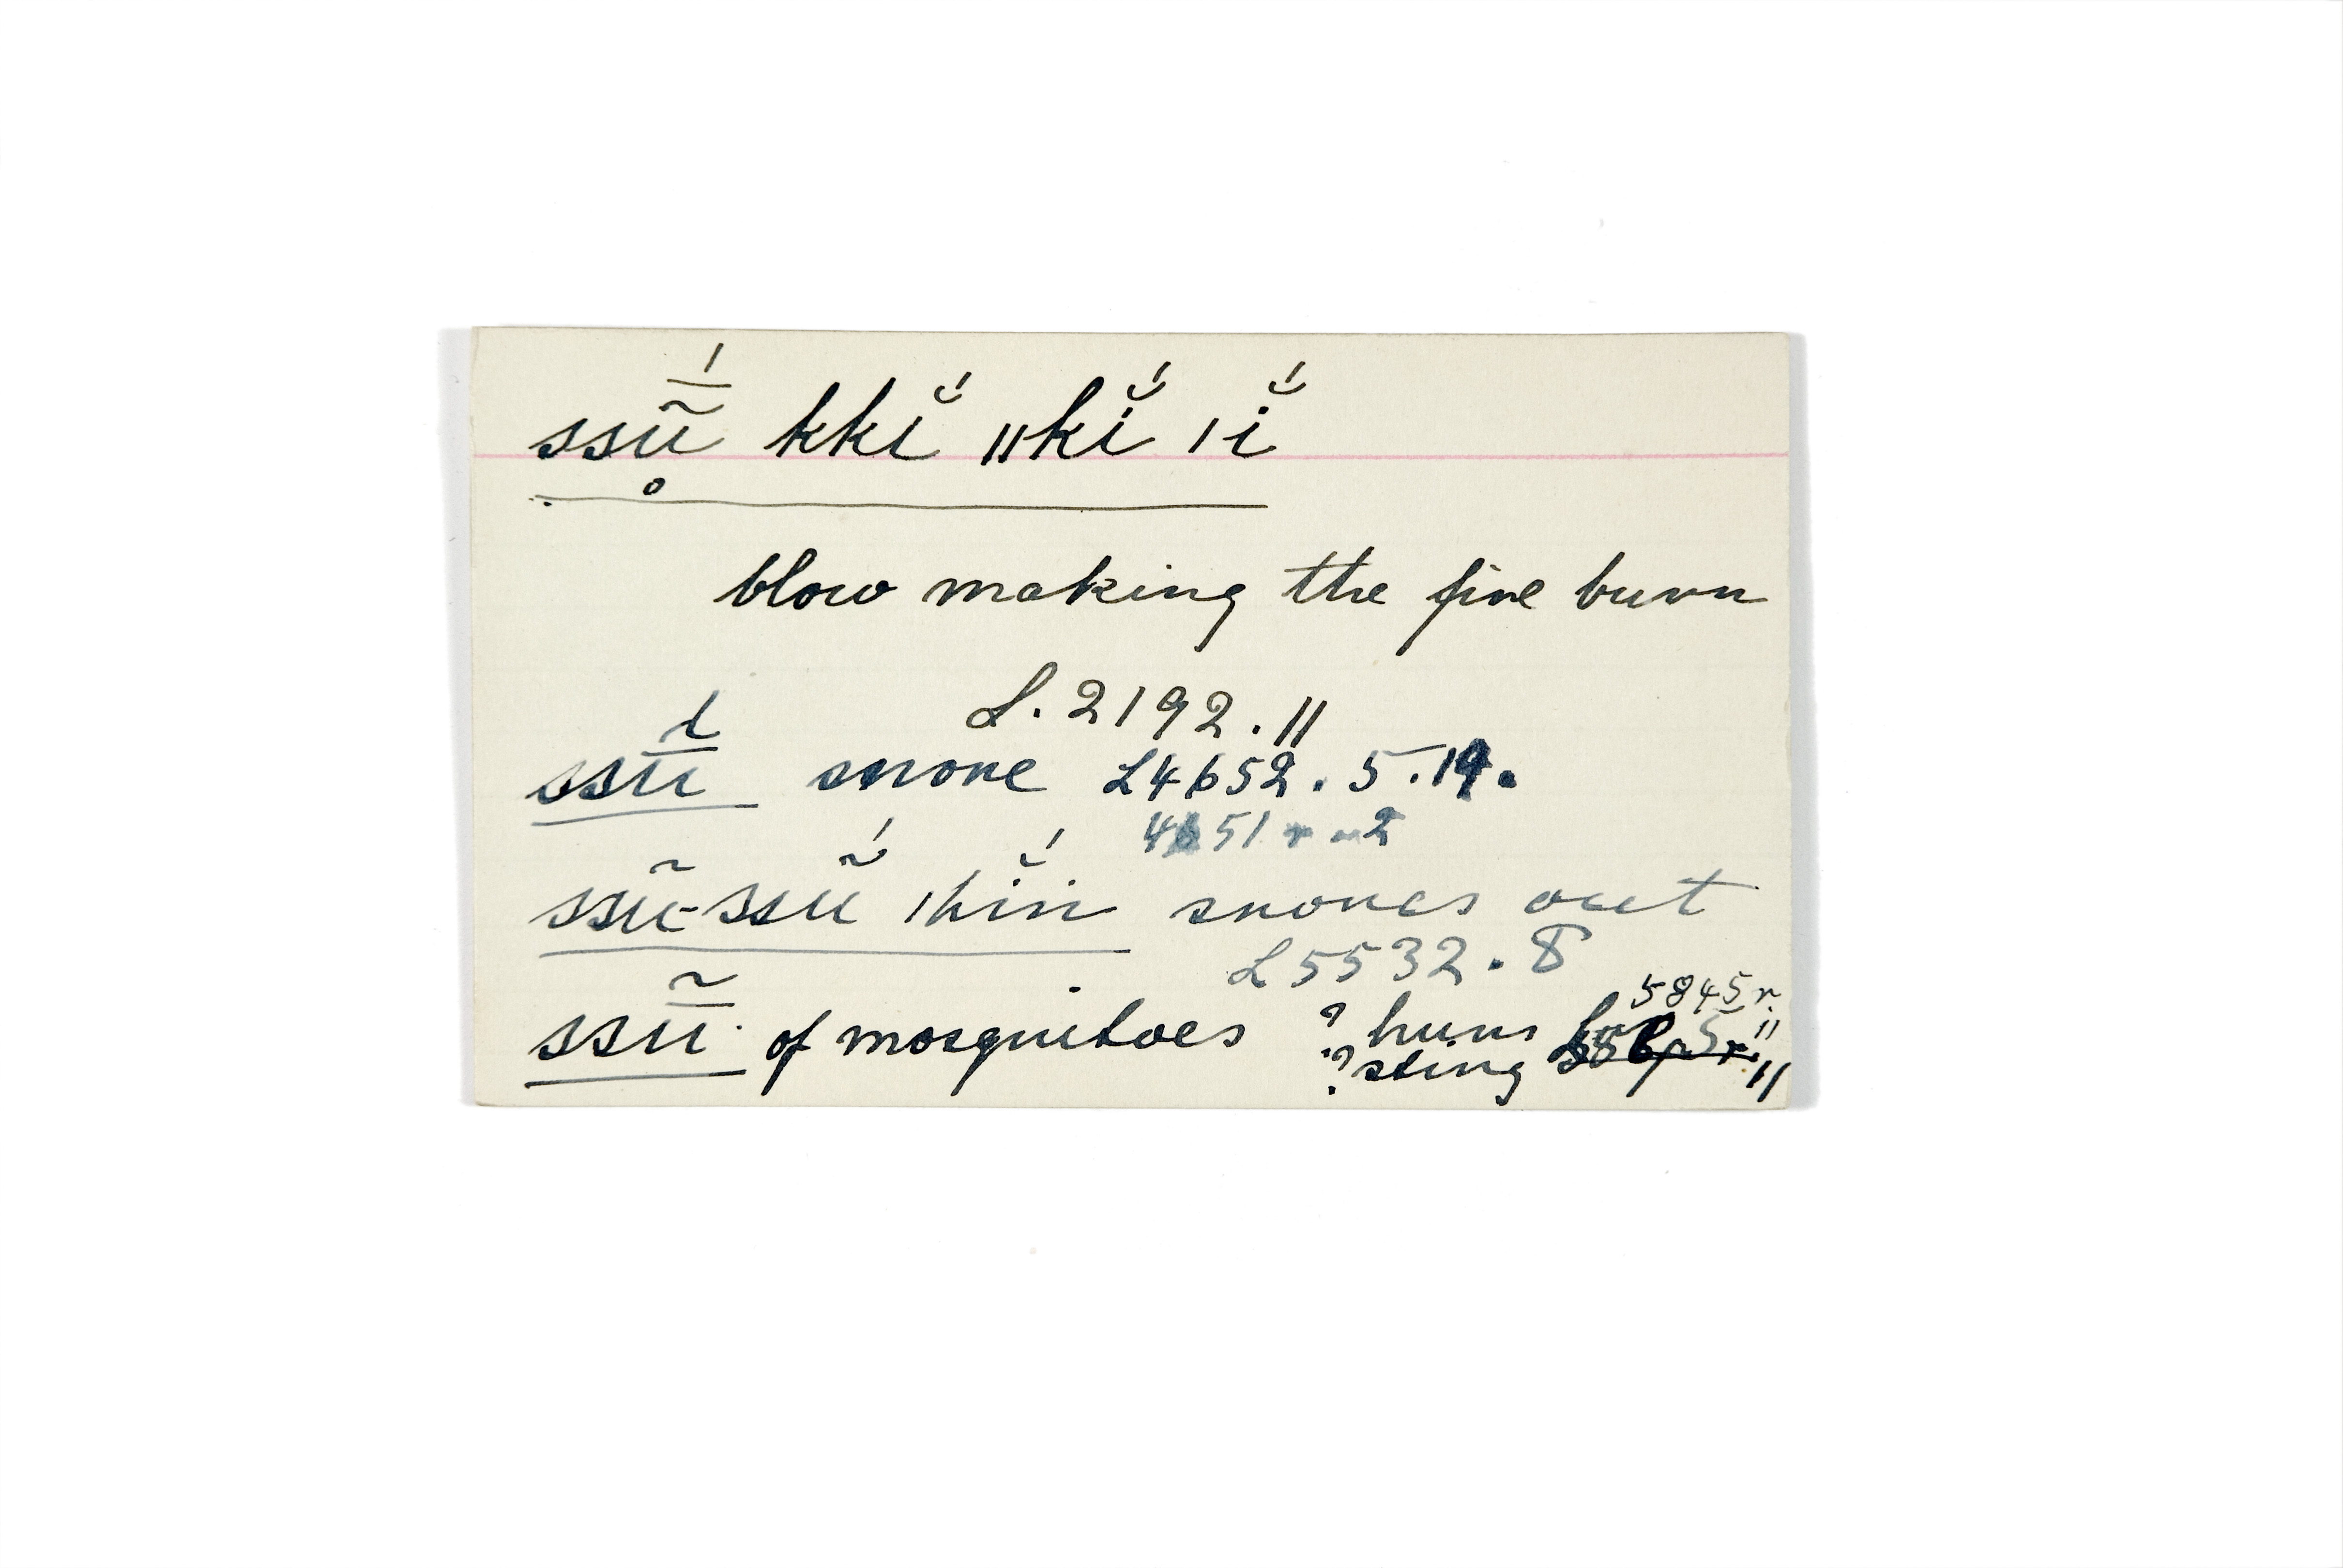 ssū̃́ kkĭ́ ǁkĭ́ ǀĭ́
blow making the fire burn
L. 2192. 11
ssū́ snore L4652. 5. 19.
4651 r 2
ssũ-ssṹ ǀhĭ́n snores out
L5532. 8
5845 r. 11
ssū̃ of mosquitoes ? hum
? sting 11